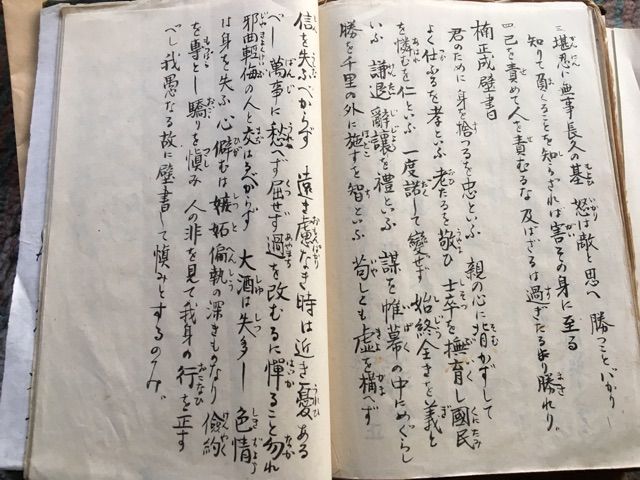 三堪忍ハ無事長久の基 怒は敵と思へ 勝つことばかり
知りて負くることを知らざれは害その身に至る
四己を責めて人を責むるな 及ばざるは過ぎたるより勝れり。
楠正成壁書
君のために身を捨つるを忠といふ 親の心に背かずして
よく仕ふるを孝といふ 老たるを敬ひ 士卒を撫育し國民
を憐むを仁といふ 一度諾して變ぜず 始終全きを義と
いふ 謙退辭讓を禮といふ 謀を帷幕の中にめぐらし
勝を千里の外に施すを智といふ 苟しくも虚を構へず
信を失ふべからず 遠き慮なき時は近き憂ある
べし 萬事に愁へず屈せず過を改むるに憚ること勿れ
邪曲輕侮の人と交はるべからず 大酒は失多し 色情
は身を失ふ 心僻むは嫉妬偏執の深きものなり 儉約
を専とし驕りを慎み 人の非を見て我身の行を正す
べし我愚なる故に壁書して慎みとするのみ。